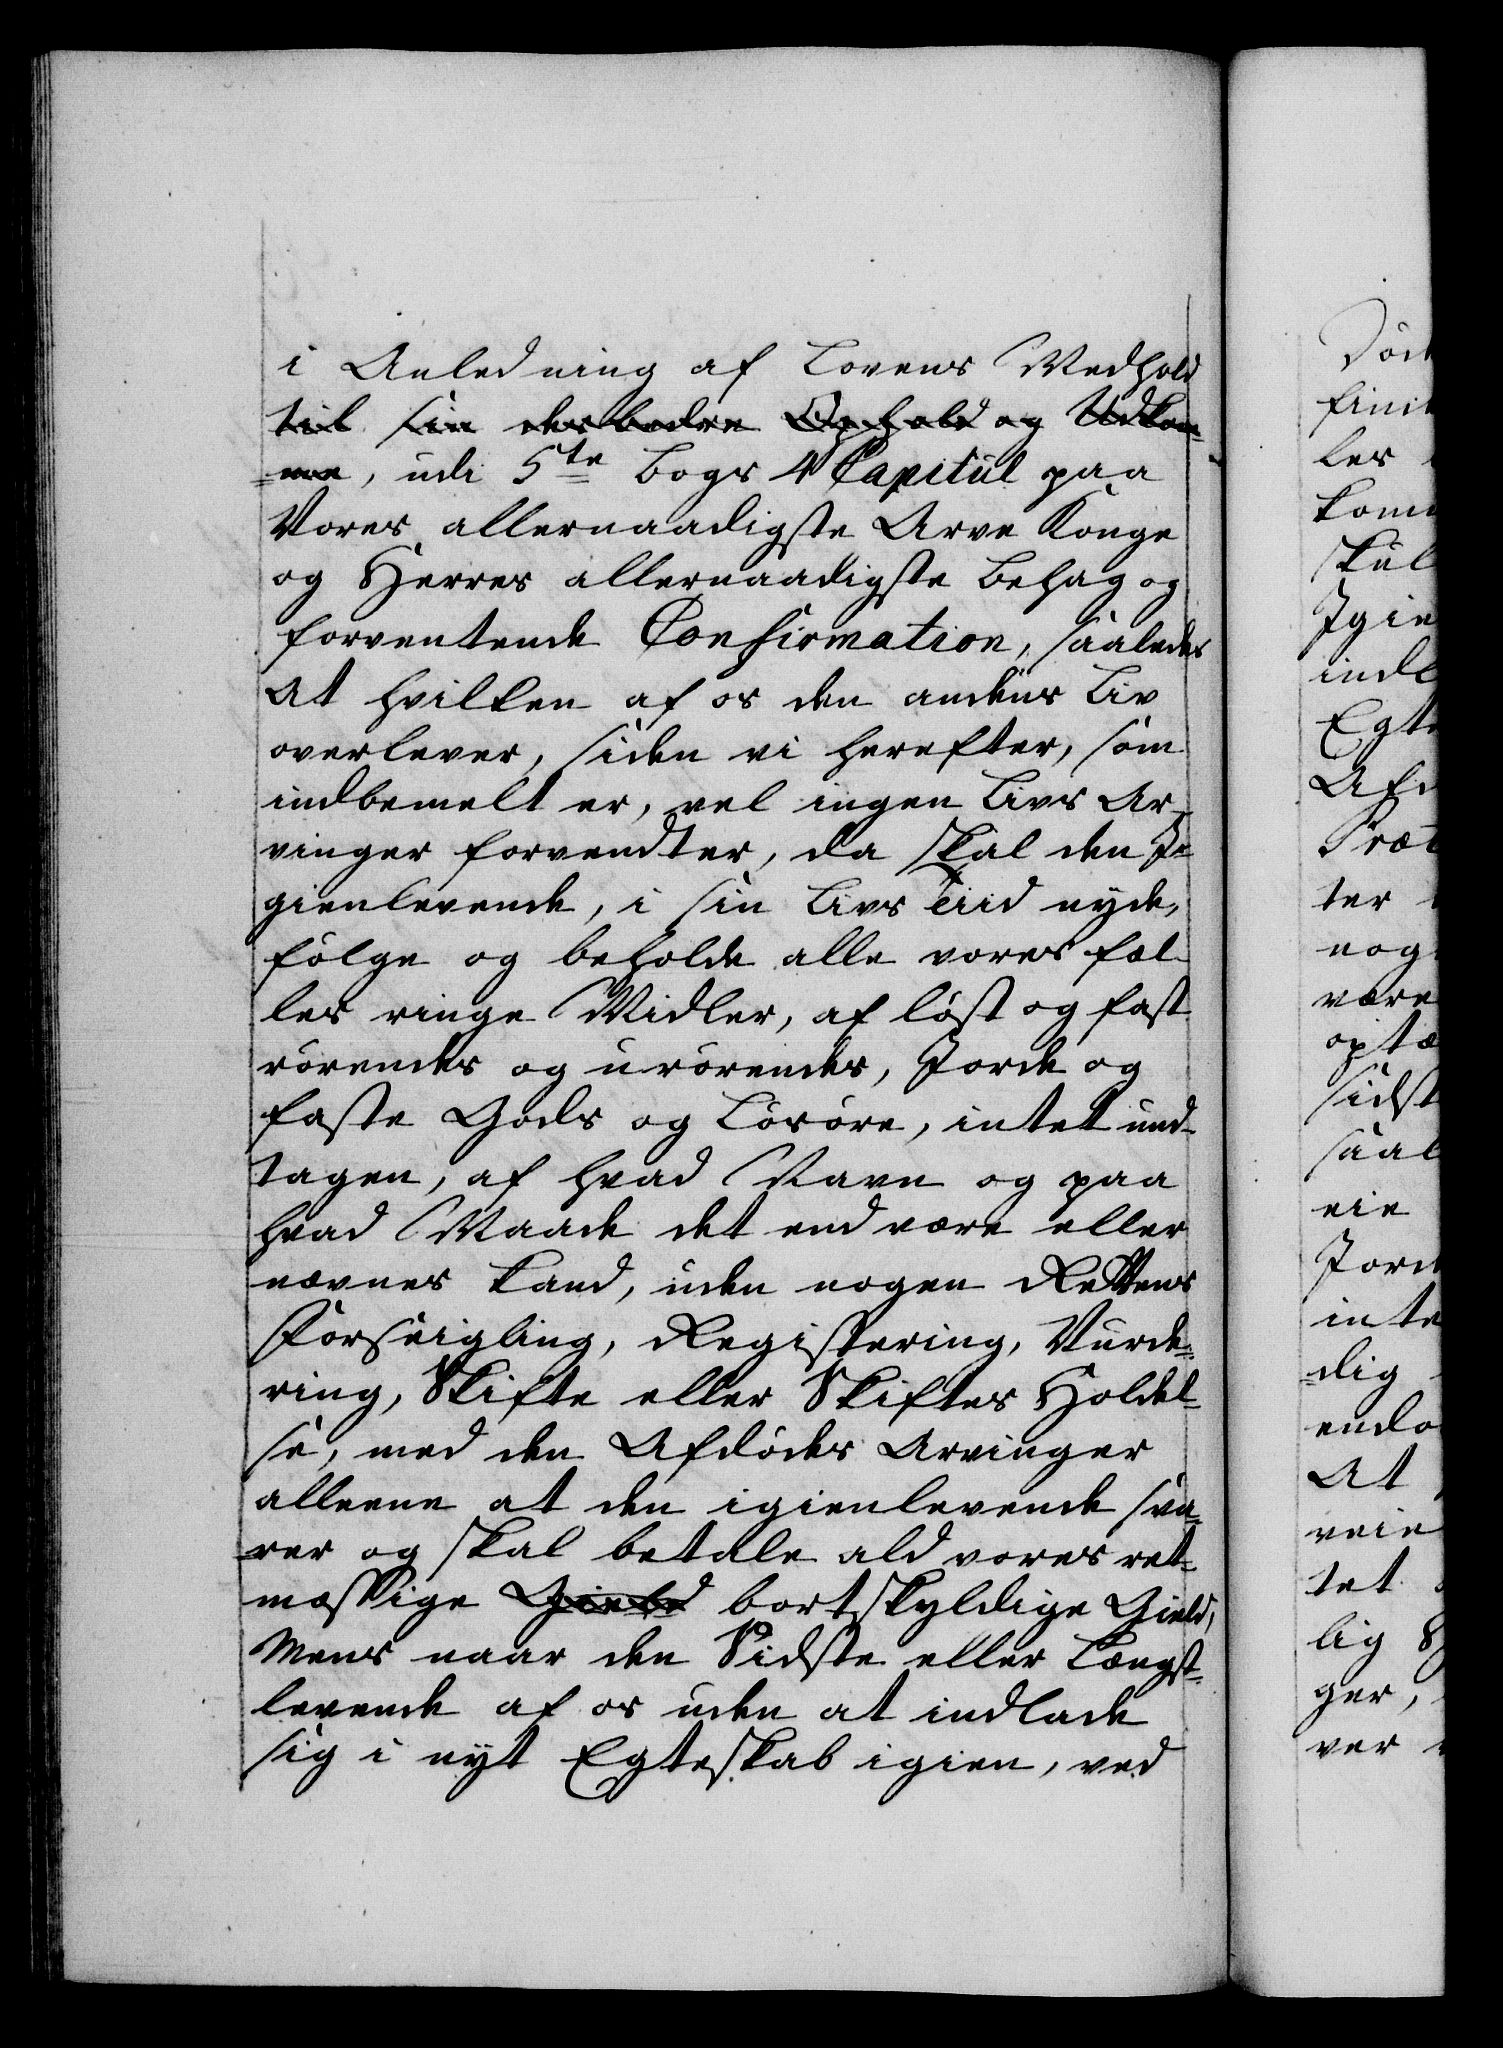 i Anledning af Lovens Medhold
til sin des bedre Ophold og Udkom-
me, udi 5te Bogs 4 Capitul paa
Vores allernaadigste Arve Konge
og Herres allernaadigste Behag og
forventende Confirmation, saaledes
At hvilken af os den andens Liv
overlever, siden vi herefter, som
indbemelt er, vel ingen Livs Ar-
vinger forvendter, da skal den I-
gienlevende, i sin Livs Tiid nyde,
følge og beholde alle vores fæl-
les ringe Midler, af løst og fast
rørendes og urørendes, Jorde og
faste Gods og Løsøre, intet und-
tagen, af hvad Navn og paa
hvad Maade det end være eller
nævnes kand, uden nogen Rettens
Forseigling, Registering, Vurde-
ring, Skifte eller Skiftes Holdel-
se, med den Afdødes Arvinger
alleene at den igienlevende sva-
rer og skal betale ald vores ret-
mæssige Gield bortskyldige Gield,
Mens naar den Sidste eller Længst-
levende af os uden at indlade
sig i nyt Egteskab igien, ved
Død
les
kom
skul
Igie
indl
Egt
Afd
Præt
ter
nog
være
optæ
sidst
saal
eie
Jord
inte
dig
endo
At
veie
tet
lig
ger,
ver